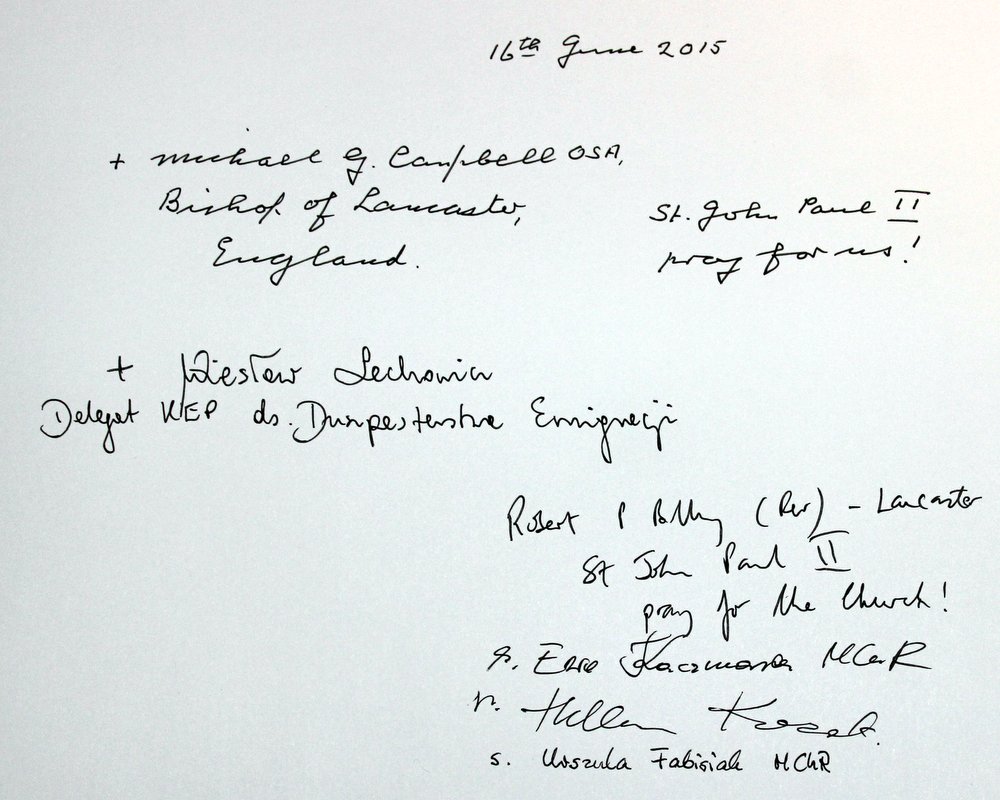 16th June 2015
+ Michael G. Campbell OSA,
Bishop of Lancaster,
England.
St. John Paul II
pray for us!
+ Wiesław Lechowicz
Delegat KEP ds. Duszpasterstwa Emigracji
Robert P (Rev) - Lancaster
St John Paul II
pray for the Church!
s. Ewa Kaczmarek MChR
s. Urszula Fabisiak MChR